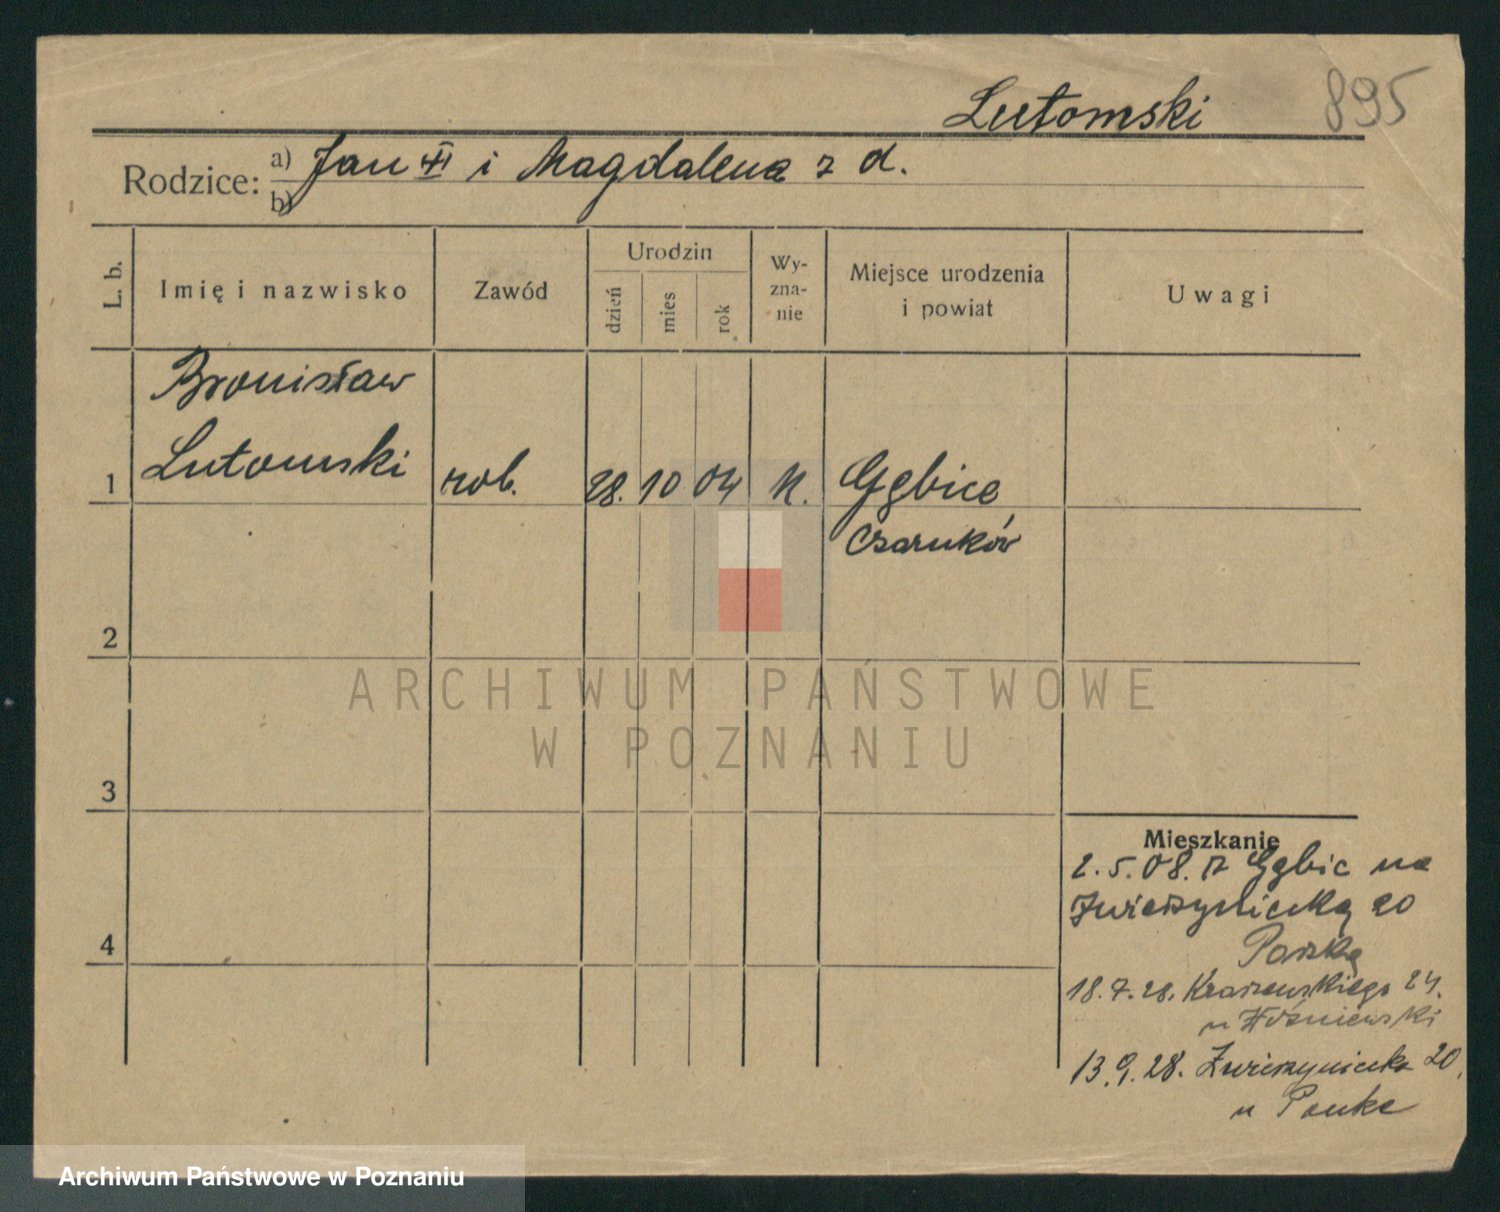 Lutomski
895
Rodzice:
a) Jan i Magdalena z d.
b)
L. b.
Imię i nazwisko
Zawód
Urodzin
dzień
mies
rok
Wy-
zna-
nie
Miejsce urodzenia
i powiat
Uwagi
Bronisław
1 Lutomski rob. 28. 10 04 Gębice
Czarnków
2
3
4
ARCHIWUM PAŃSTWOWE
W POZNANIU
Mieszkanie
2.5.08. z Gębic na
Zwierzyniecką 20
18.7.28. Kraszewskiego 24.
13.9.28. Zwierzyniecka 20,
Archiwum Państwowe w Poznaniu